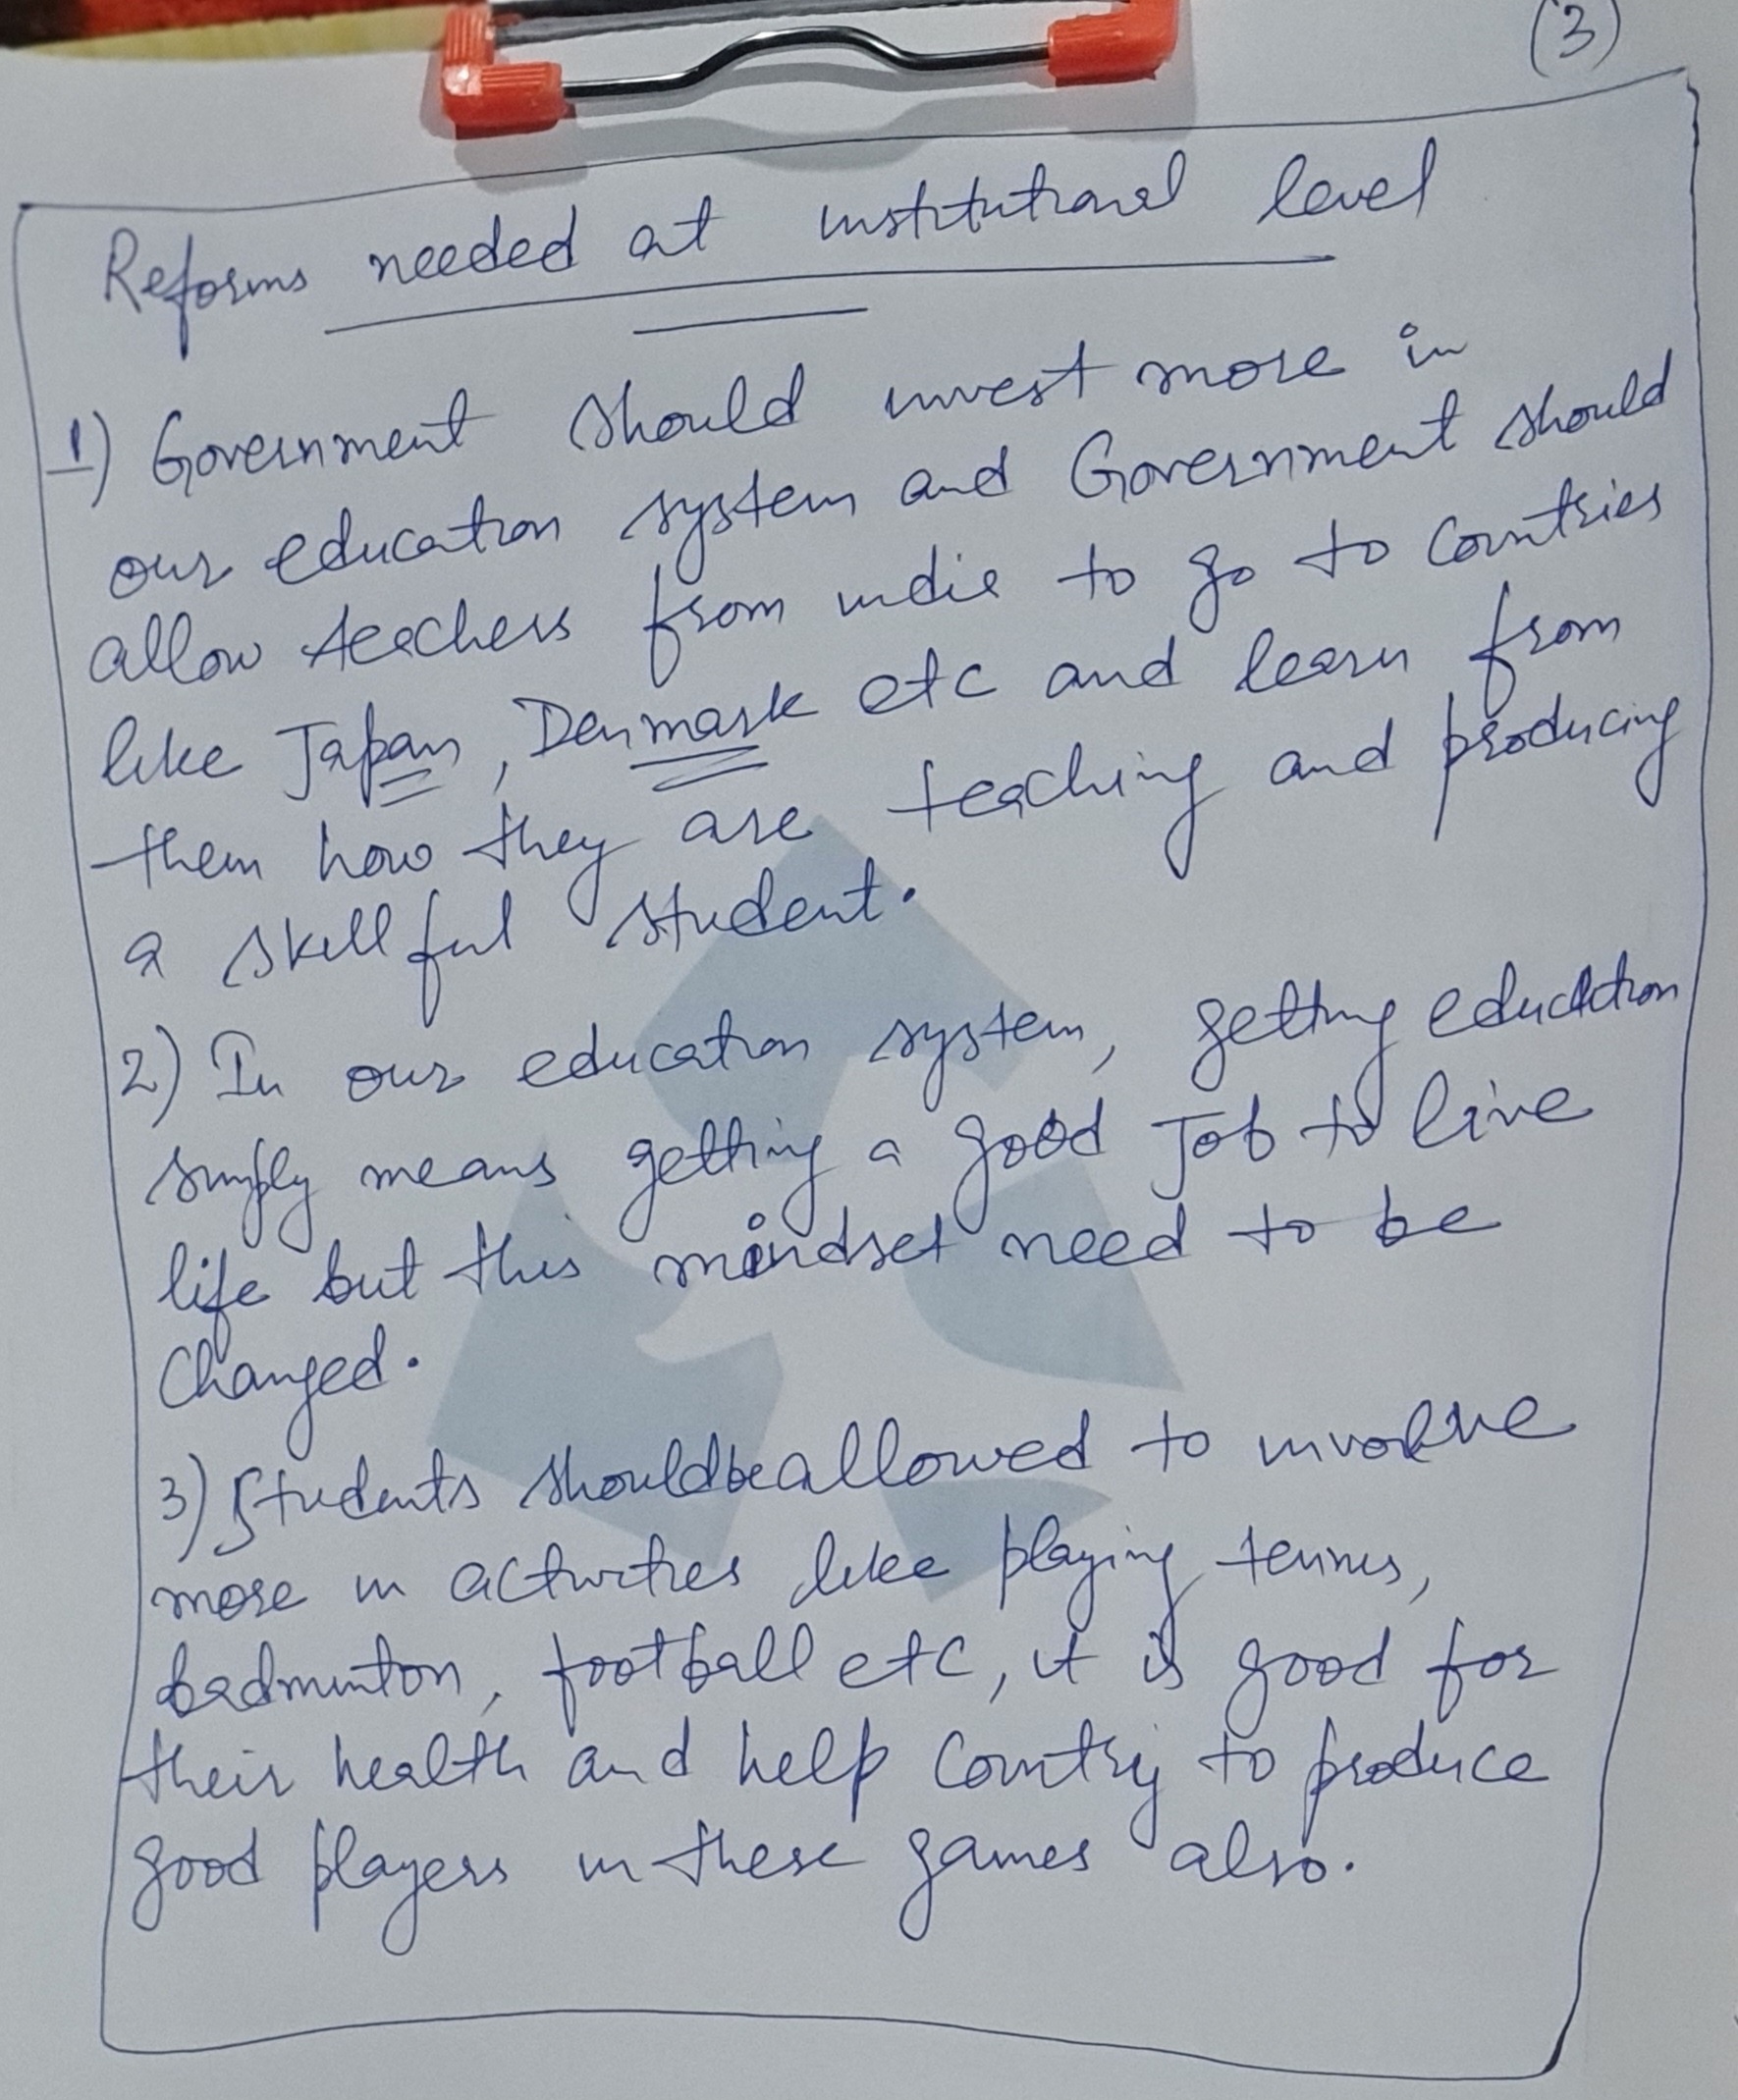 (3)
Reforms needed at institutional level
1) Government should invest more in
our education system and Government should
allow teachers from india to go to Countries
like Japan, Denmark etc and learn from
them how they are teaching and producing
a skillful student.
2) In our education system, getting education
simply means getting a good Job to live
life but this mindset need to be
Changed.
3) Students should be allowed to involve
more in activities like playing tennis,
badminton, football etc, it is good for
their health and help Country to produce
good players in these games also.